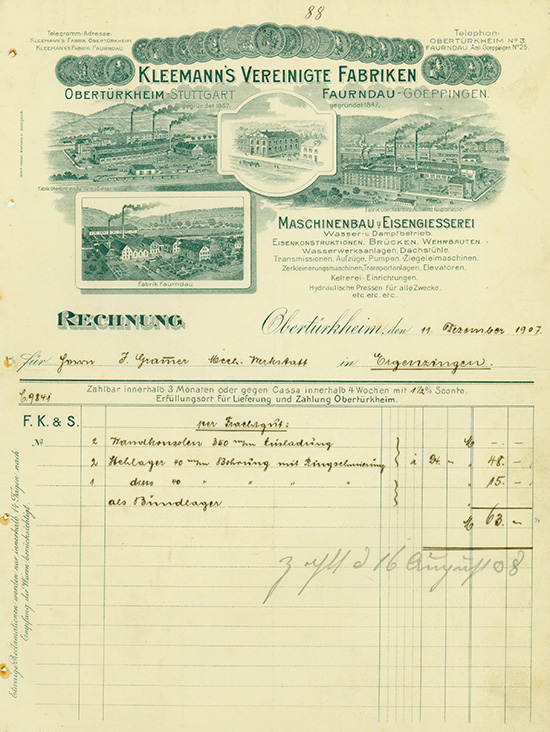 88
Telegramm-Adresse:
KLEEMANN'S FABRIK OBERTÜRKHEIM
KLEEMANN'S FABRIK FAURNDAU.
Telephon:
OBERTÜRKHEIM Nº 3.
FAURNDAU Amt Goeppingen Nº 25.
KLEEMANN'S VEREINIGTE FABRIKEN
OBERTÜRKHEIM-STUTTGART
gegründet 1857.
FAURNDAU-GOEPPINGEN.
gegründet 1847.
Fabrik Faurndau
MASCHINENBAU U. EISENGIESSEREI
Wasser- u. Dampfbetrieb.
EISENKONSTRUKTIONEN, BRÜCKEN, WEHRBAUTEN.
Wasserwerksanlagen, Dachstühle,
Transmissionen, Aufzüge, Pumpen, Ziegeleimaschinen,
Zerkleinerungsmaschinen, Transportanlagen, Elevatoren.
Kelterei-Einrichtungen,
Hydraulische Pressen für alle Zwecke.
etc. etc. etc.
RECHNUNG
Obertürkheim, den 11. Dezember 1907.
für Herrn J. Mech. Werkstatt in Ergenzingen.
Zahlbar innerhalb 3 Monaten oder gegen Cassa innerhalb 4 Wochen mit 1½ % Sconto.
Erfüllungsort für Lieferung und Zahlung Obertürkheim.
9841
F. K. & S.
per Frachtgut:
№ 2 Wandkonsolen 350 m/m Ausladung M - . -
2 Stehlager 40 m/m Bohrung mit Ringschmierung à 24. - " 48. -
1 " dies 40 " " " " " 15. -
als Bundlager
M 63. -
16 August 08
Etwaige Reclamationen werden nur innerhalb 14 Tagen nach
Empfang der Waren berücksichtigt.